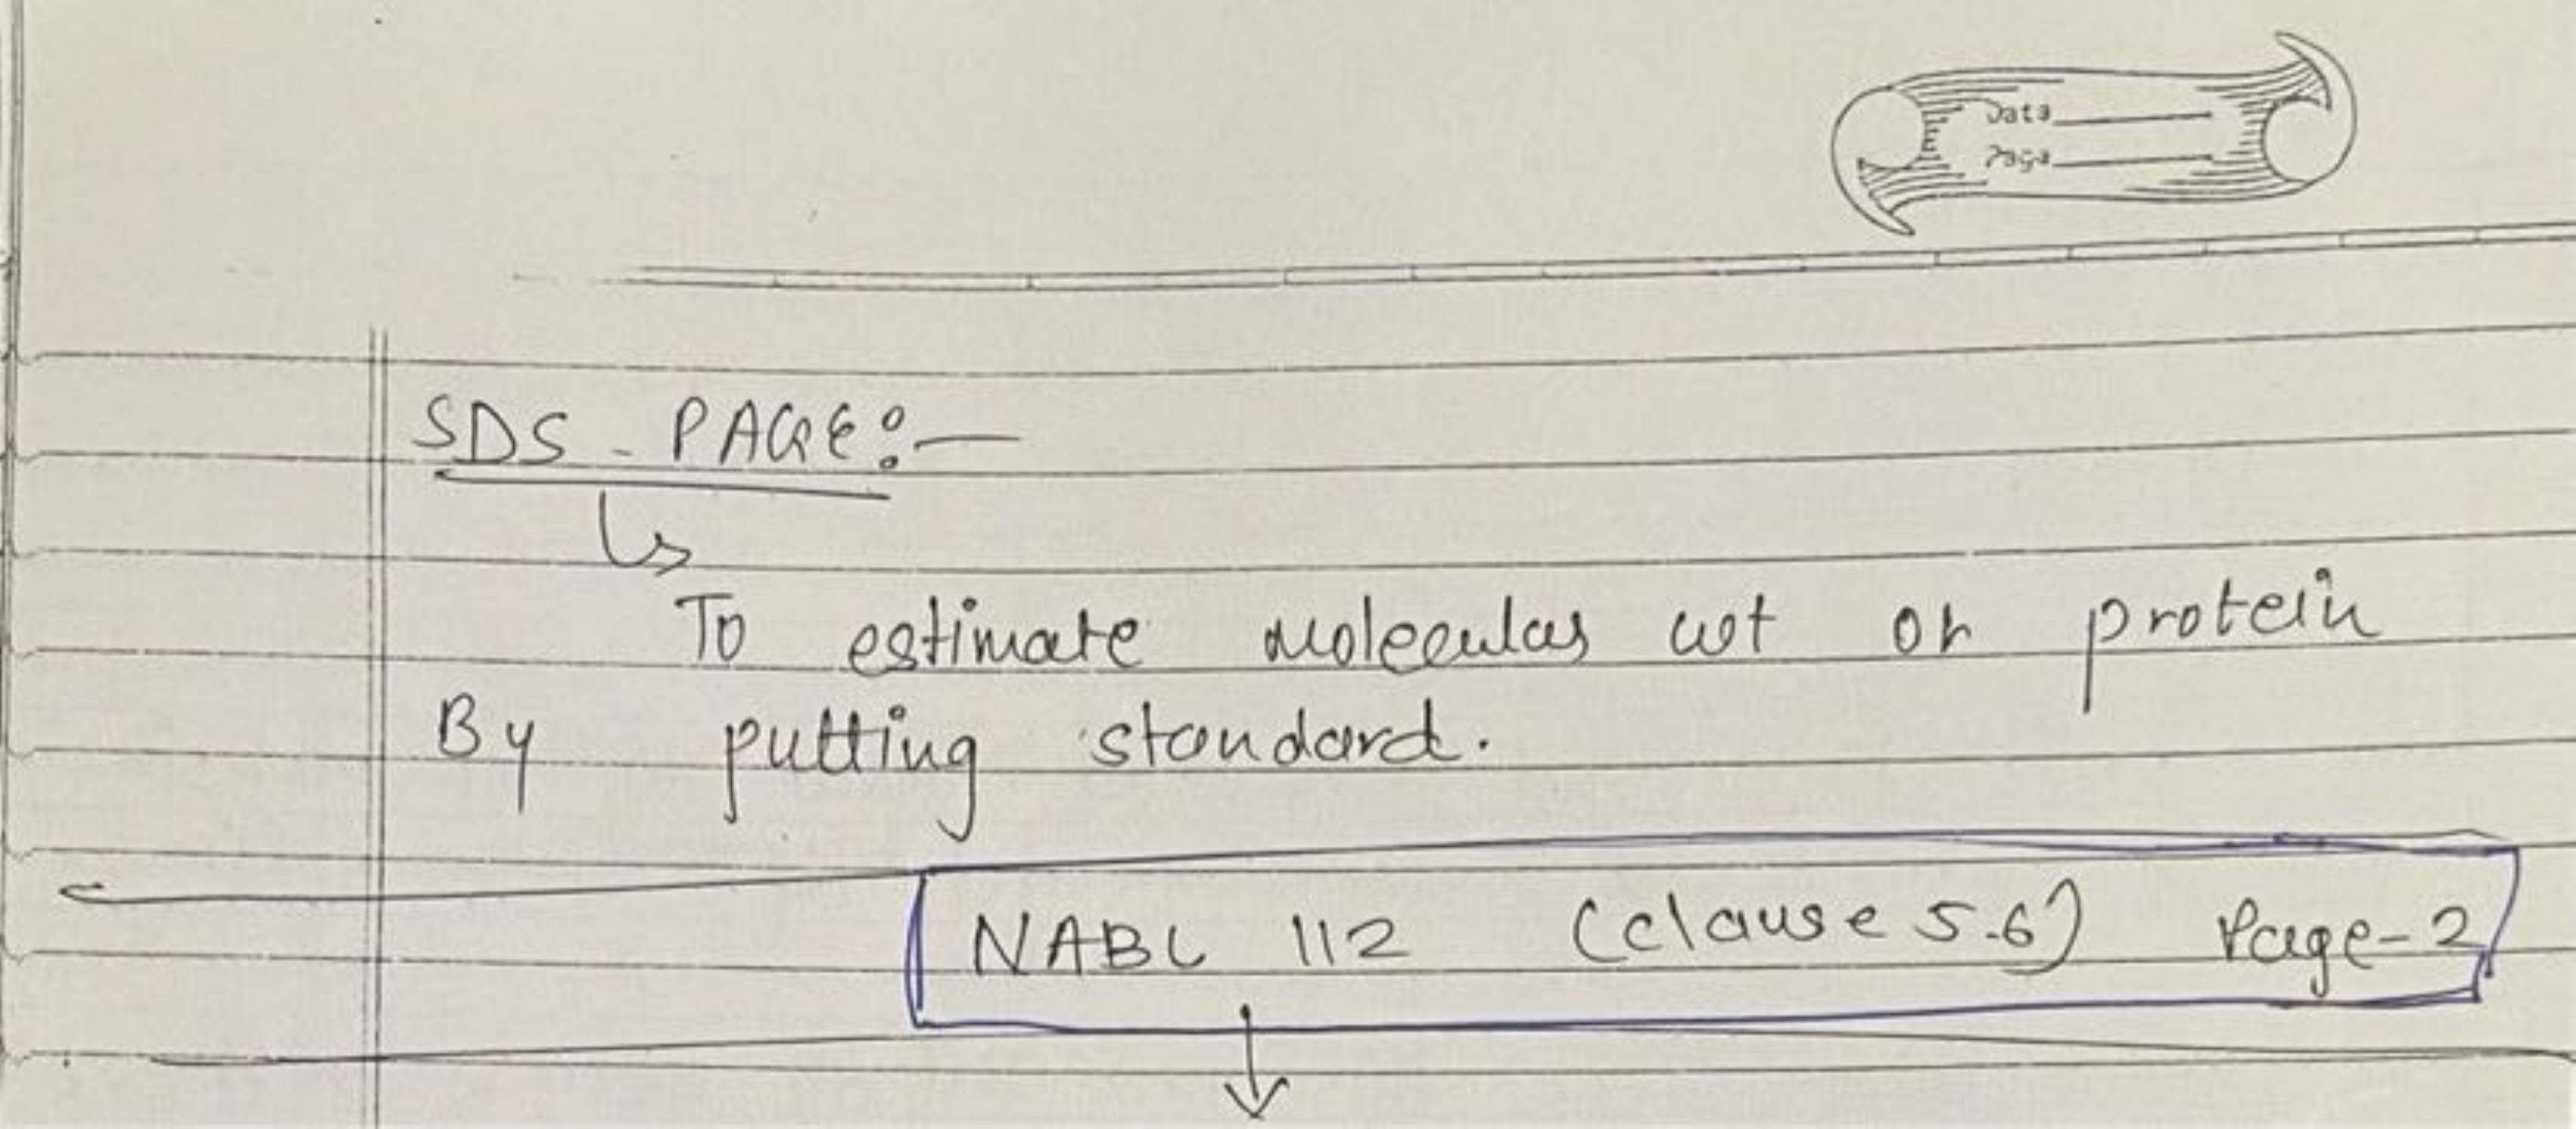 Date
Page
SDS - PAGE:-
To estimate molecular wt of protein
By putting standard.
NABL 112 (clause 5.6) Page-2